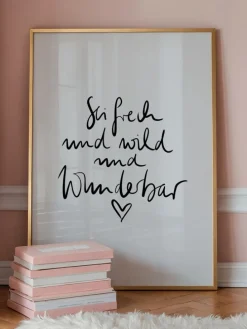 Sei frech
und wild
und
Wunderbar
♡